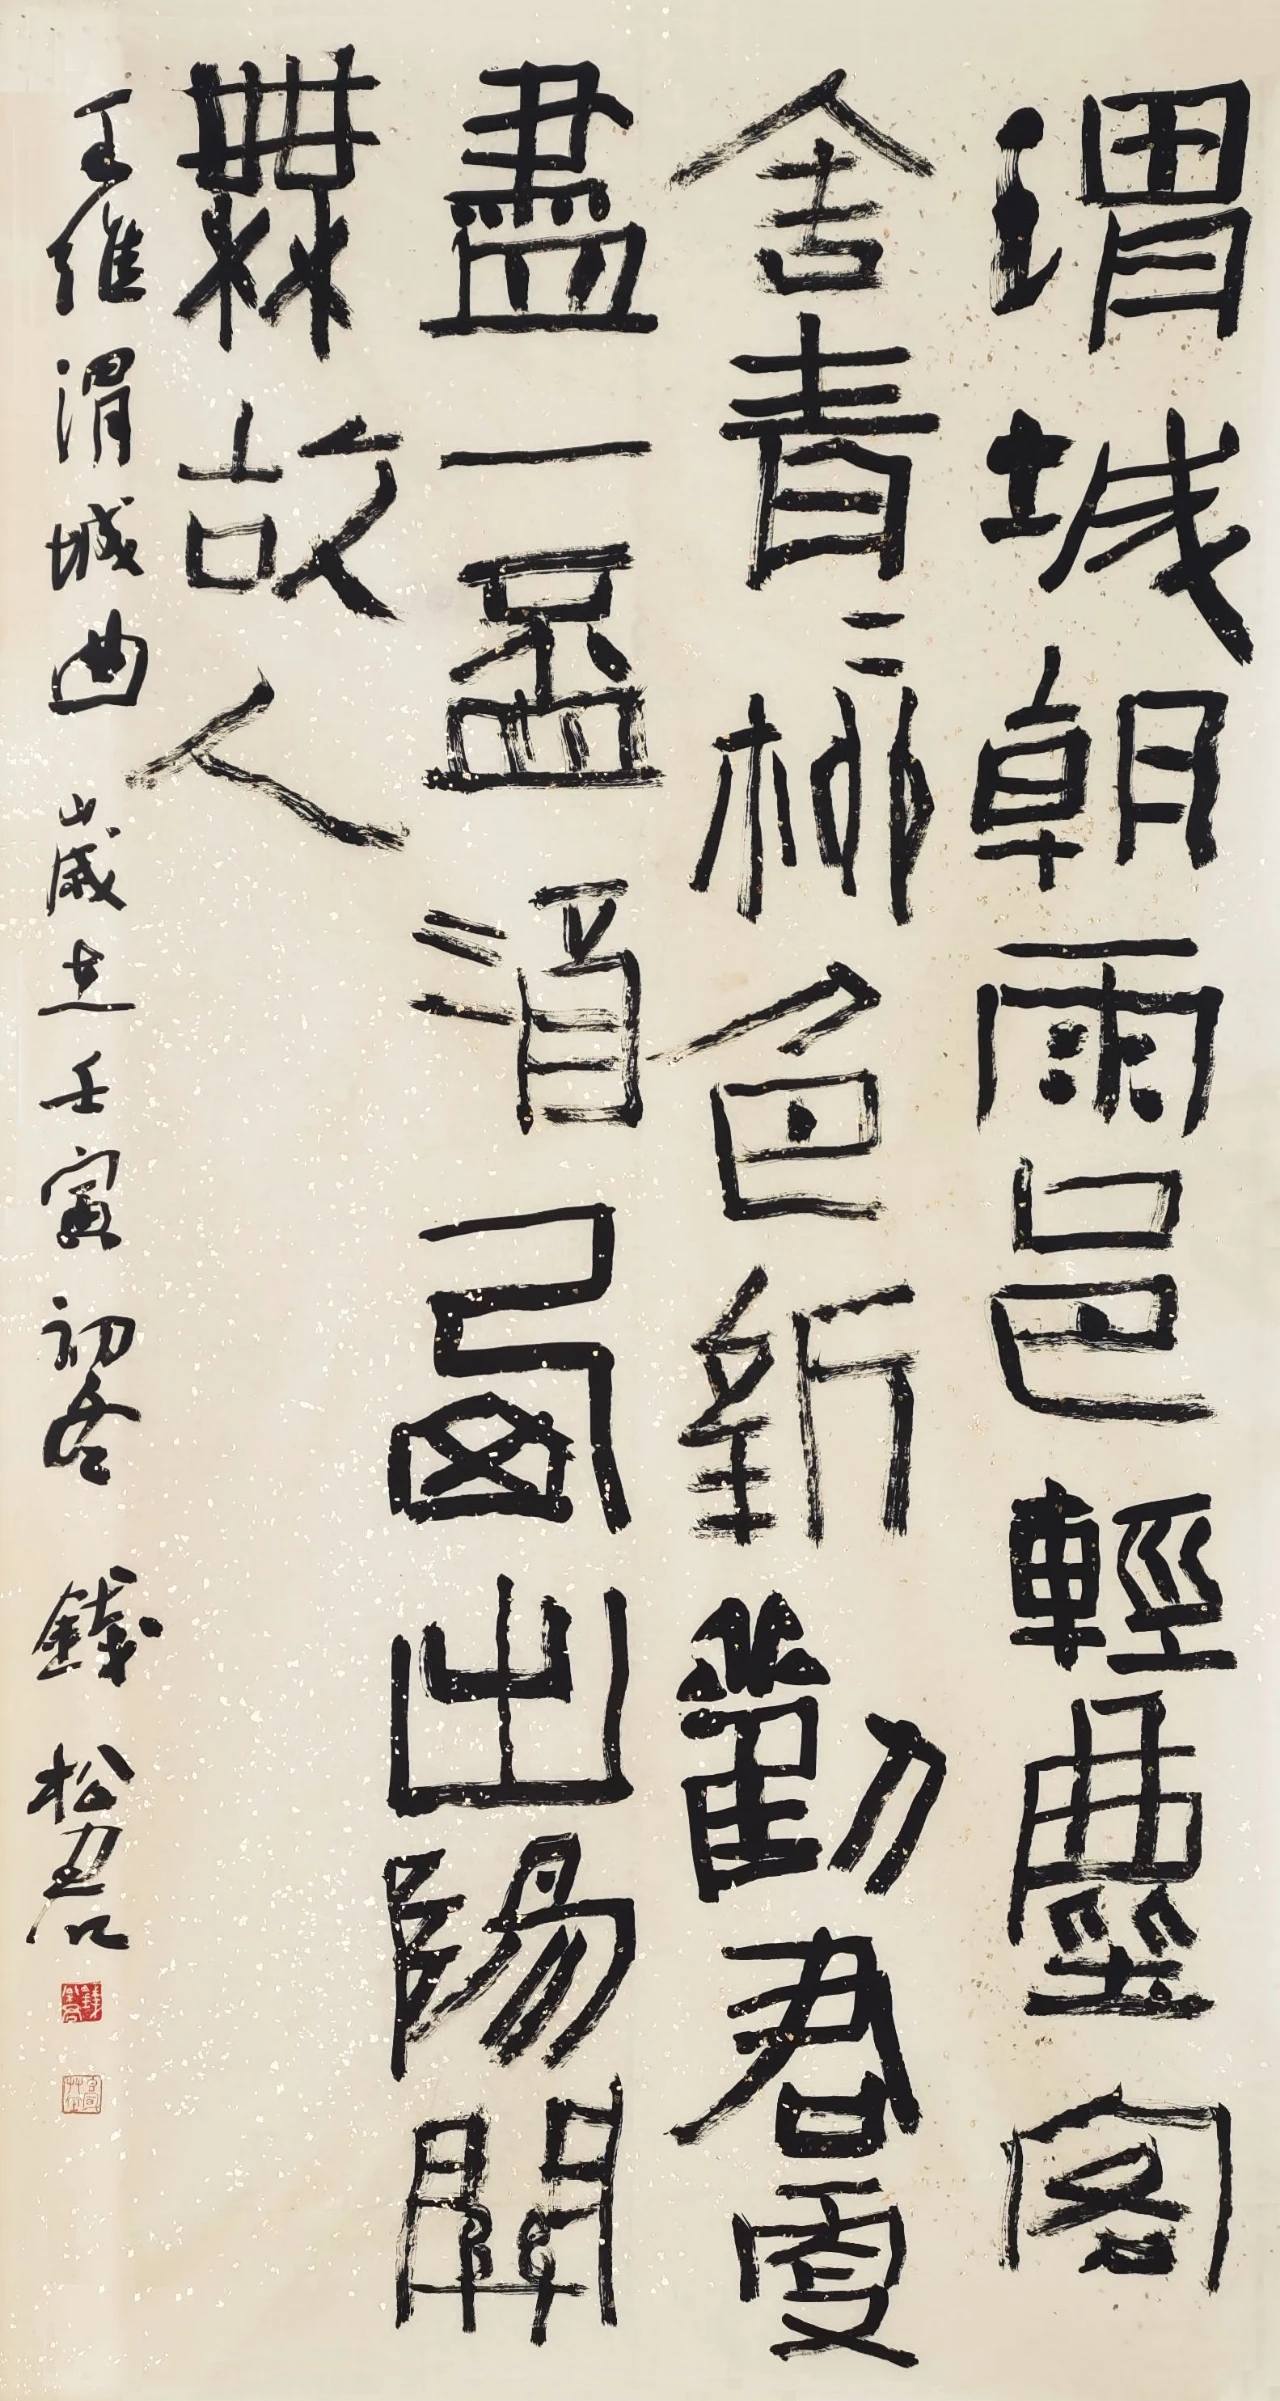 渭城朝雨邑輕塵客
舍青〻柳色新勸君更
盡一盃酒西出陽關
無故人
王維渭城曲 歲在壬寅初冬 錢松君